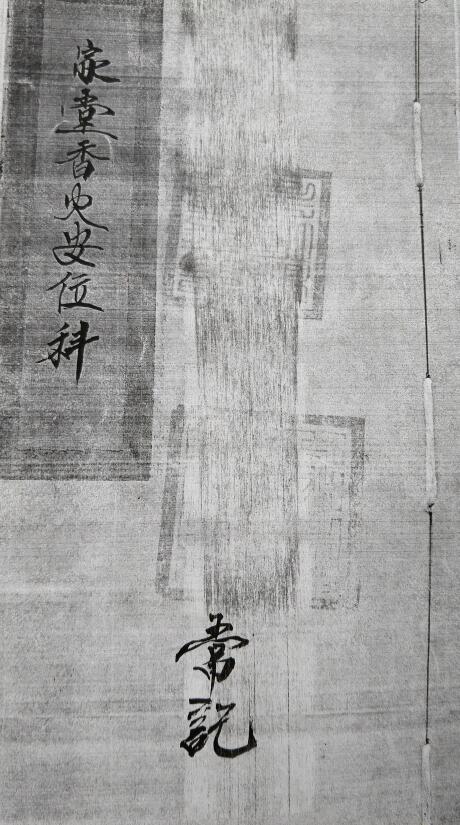 家堂香火安位科
常記